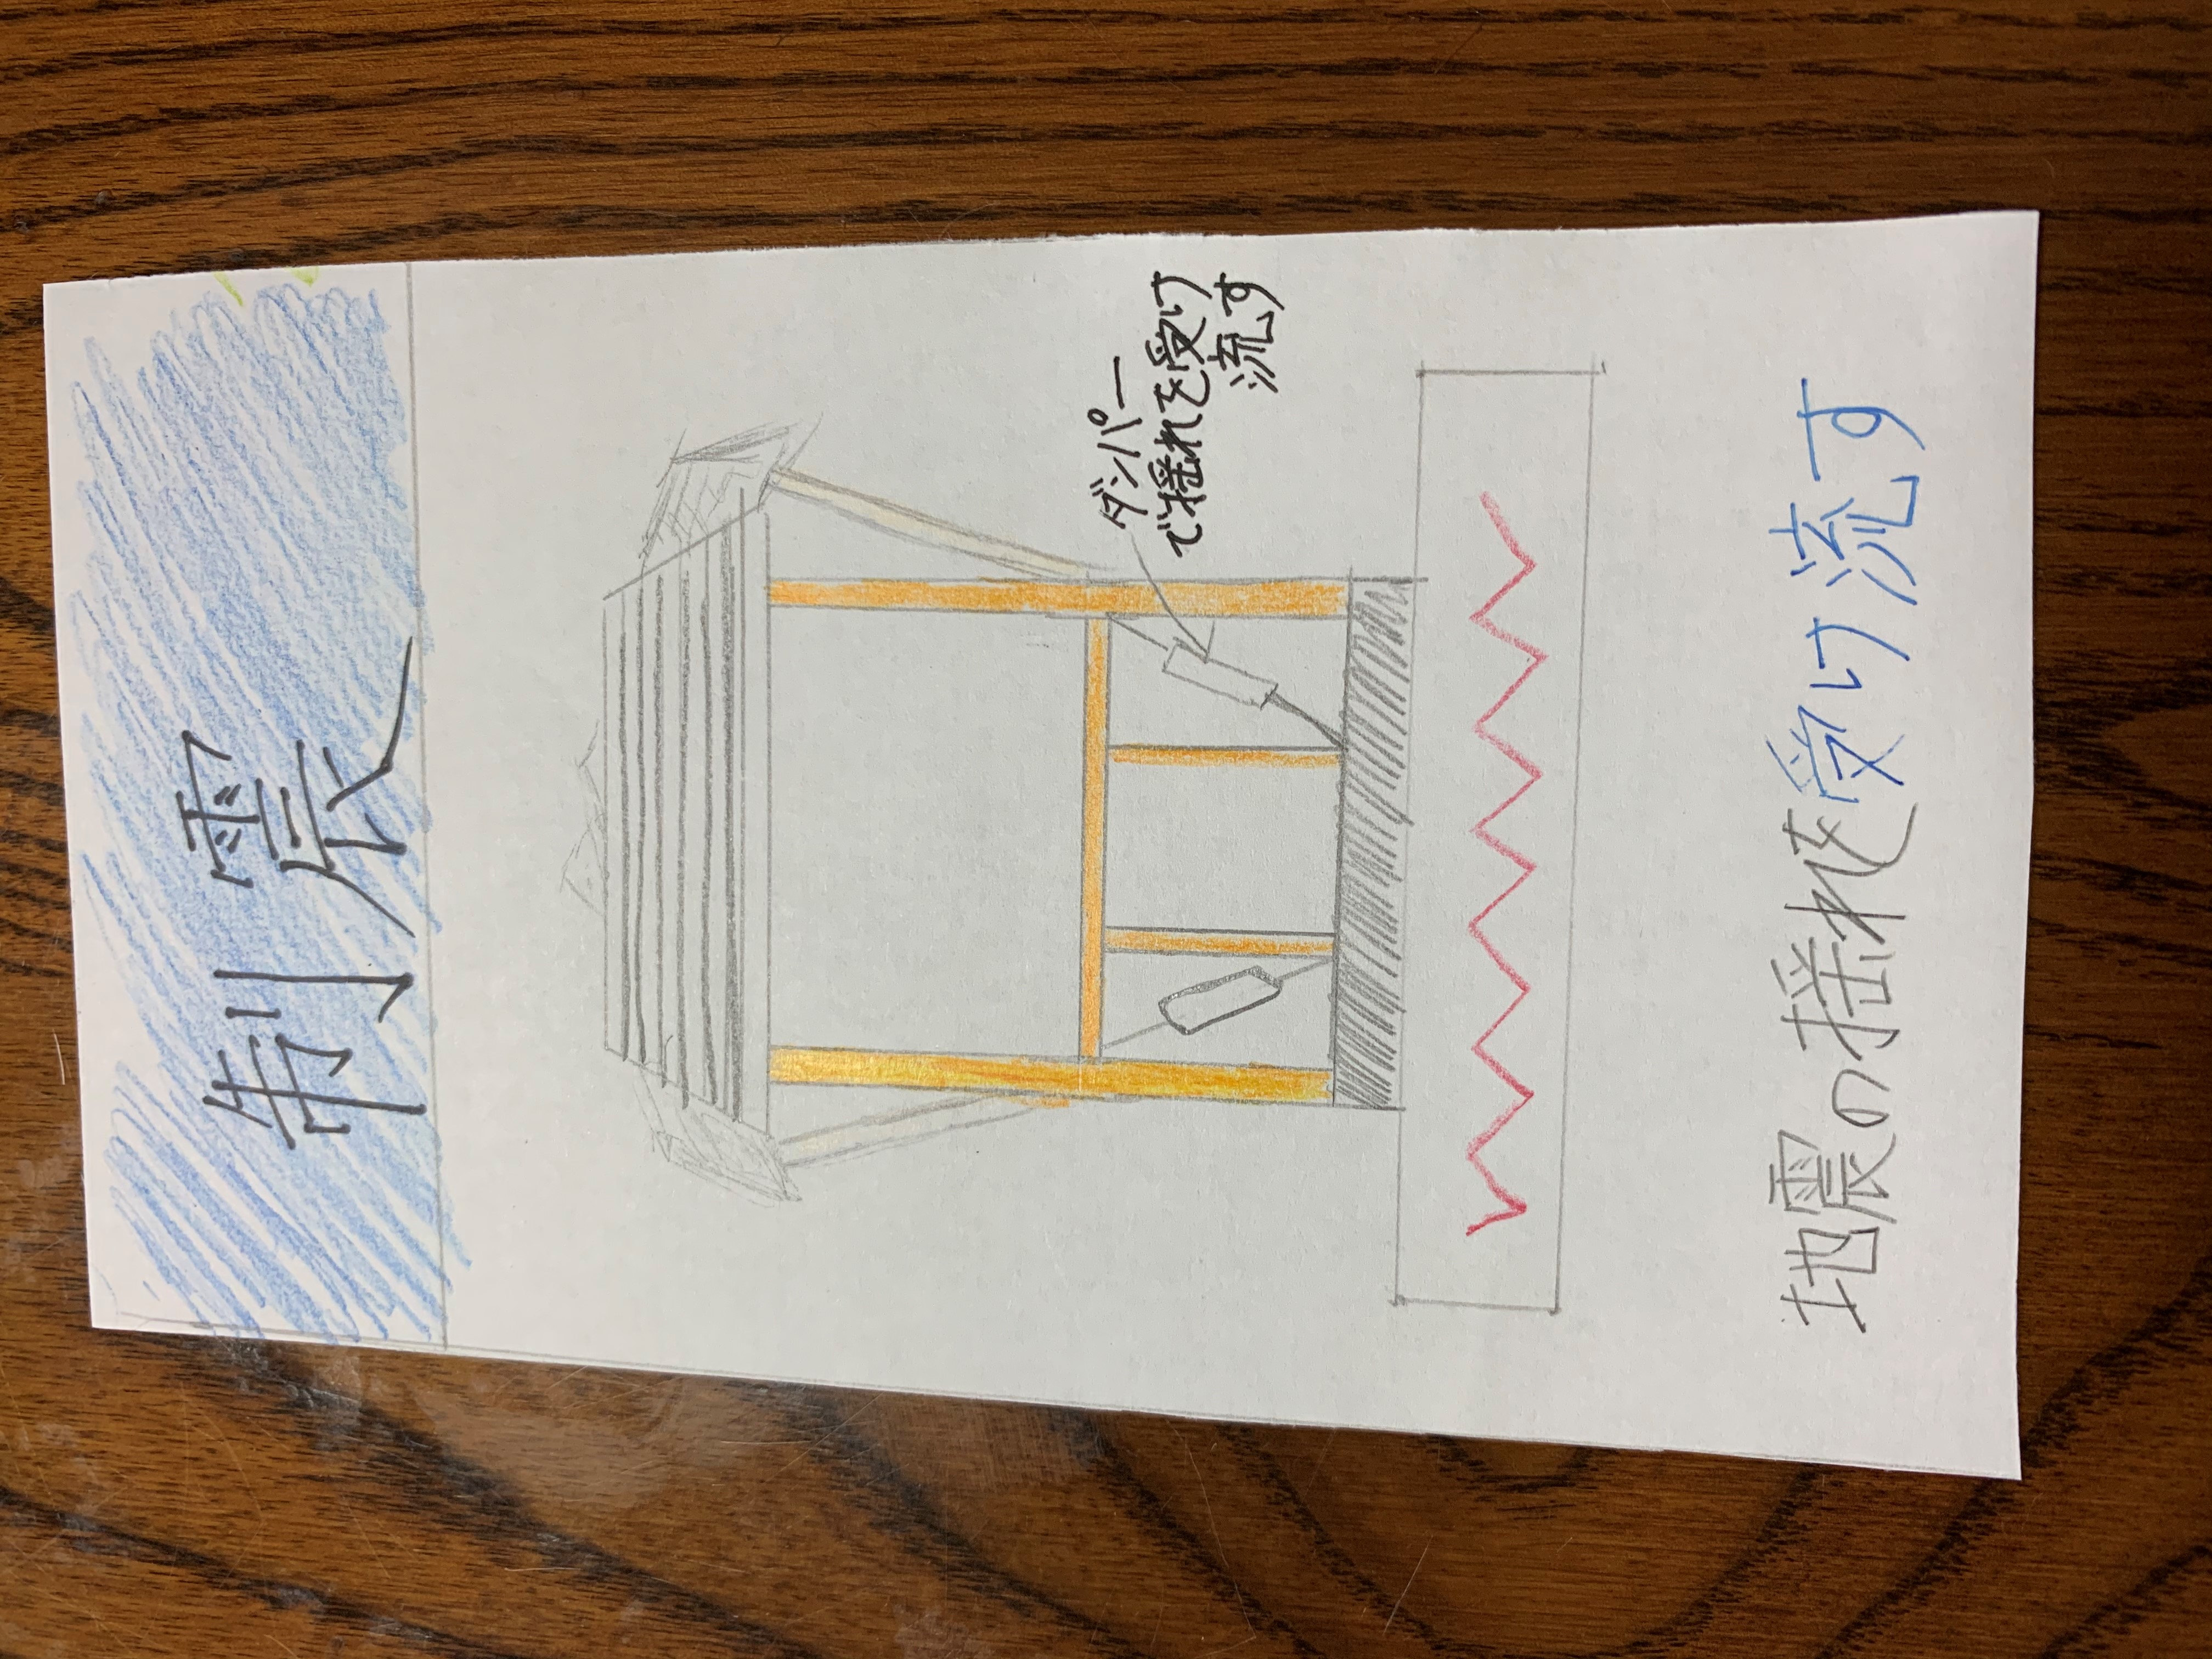 制震
ダンパー
で揺れを受け
流す
地震の揺れを受け流す